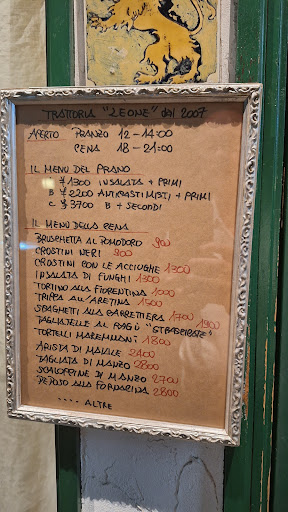 TRATTORIA "LEONE" dal 2007
APERTO PRANZO 12-14:00
CENA 18-21:00
IL MENU DEL PRANO
A ¥1300 INSALATA + PRIMI
B ¥2200 ANTIPASTIMISTI + PRIMI
C ¥3700 B + SECONDI
IL MENU DELLA CENA
BRUSCHETTA AL POMODORO 900
CROSTINI NERI 900
CROSTINI CON LE ACCIUGHE 1300
INSALATA DI FUNGHI 1300
TORTINO ALLA FIORENTINA 1000
TRIPPA ALL'ARETINA 1500
SPAGHETTI ALLA CARRETTIERA 1700
TAGLIATELLE AL RAGÙ "STRASCICATE" 1900
TORTELLI MAREMMANI 1800
ARISTA DI MAIALE 2400
TAGLIATA DI MANZO 2800
SCALOPPINE DI MANZO 2700
PEPOSO ALLA FORNACINA 2800
.... ALTRE